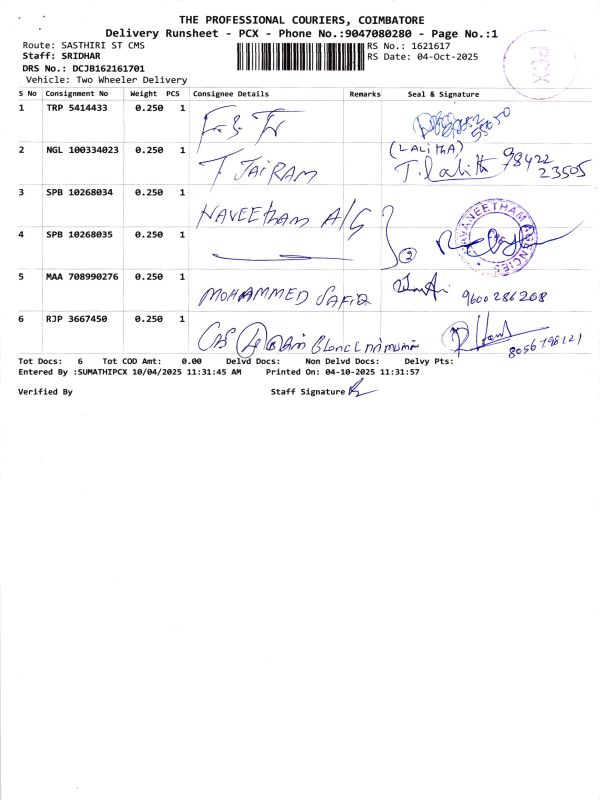 THE PROFESSIONAL COURIERS, COIMBATORE
Delivery Runsheet - PCX - Phone No.:9047080280 - Page No.:1
Route: SASTHIRI ST CMS
RS No.: 1621617
Staff: SRIDHAR
RS Date: 04-Oct-2025
DRS No.: DCJB162161701
Vehicle: Two Wheeler Delivery
PCX
S No Consignment No Weight PCS Consignee Details Remarks Seal & Signature
1 TRP 5414433 0.250 1
2 NGL 100334023 0.250 1 T JAIRAM (LALITHA) T. Lalitha 98422 23505
3 SPB 10268034 0.250 1 NAVEETHAM A/G
4 SPB 10268035 0.250 1 2 NAVANEETHAM AGENCIES
5 MAA 708990276 0.250 1 MOHAMMED SAFIQ 9600286208
6 RJP 3667450 0.250 1 8056798121
Tot Docs: 6 Tot COD Amt: 0.00 Delvd Docs: Non Delvd Docs: Delvy Pts:
Entered By :SUMATHIPCX 10/04/2025 11:31:45 AM Printed On: 04-10-2025 11:31:57
Verified By Staff Signature